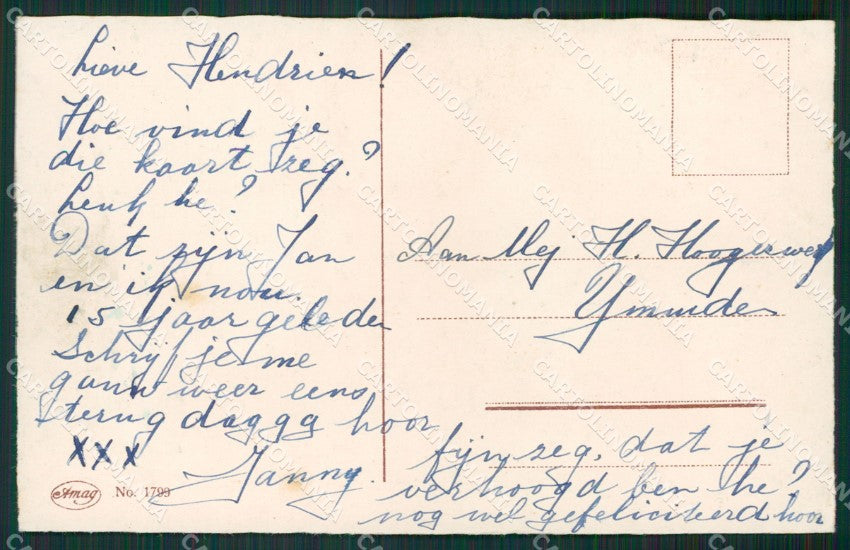 Lieve Hendrien!
Hoe vind je
die kaart zeg?
Leuk he?
Dat zijn Jan
en ik nou.
15 jaar geleden
Schrijf je me
gauw weer eens
terug daggg hoor
XXX
Janny.
Amag No. 1799
Aan Mej H. Hoogerwerf
Ymuiden
fijn zeg, dat je
verhoogd ben he?
nog wel gefeliciteerd hoor
CARTOLINOMANIA